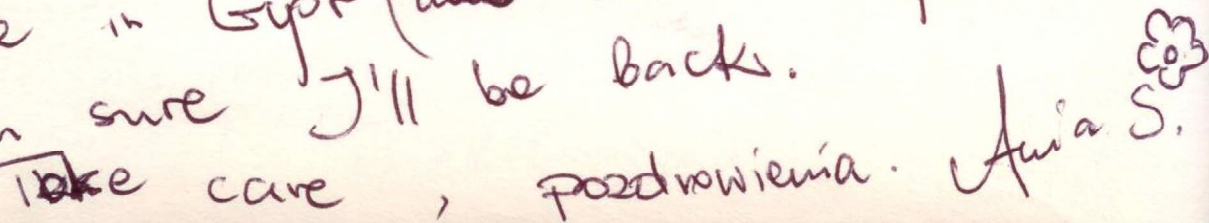 in Györ
sure I'll be back.
Take care, pozdrowienia. Ania S.